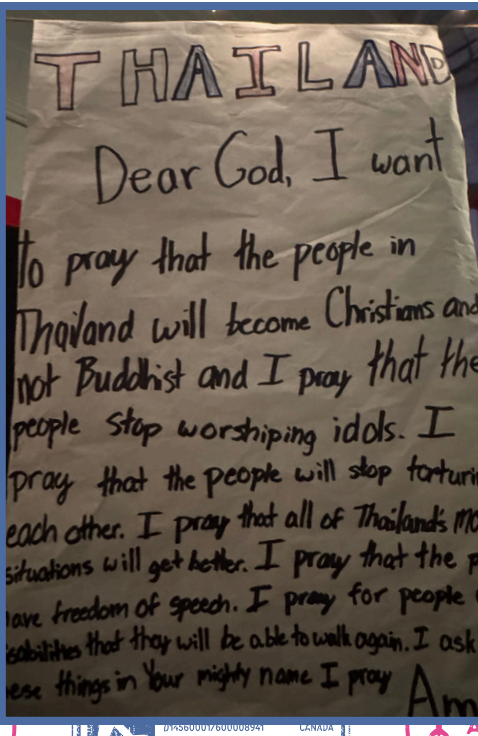 THAILAND
Dear God, I want
To pray that the people in
Thailand will become Christians and
not Buddhist and I pray that the
people stop worshiping idols. I
pray that the people will stop torturin
each other. I pray that all of Thailand's mo
situations will get better. I pray that the p
ave freedom of speech. I pray for people
sabilities that they will be able to walk again. I ask
ese things in Your mighty name I pray Am
D145600017600008941
CANADA